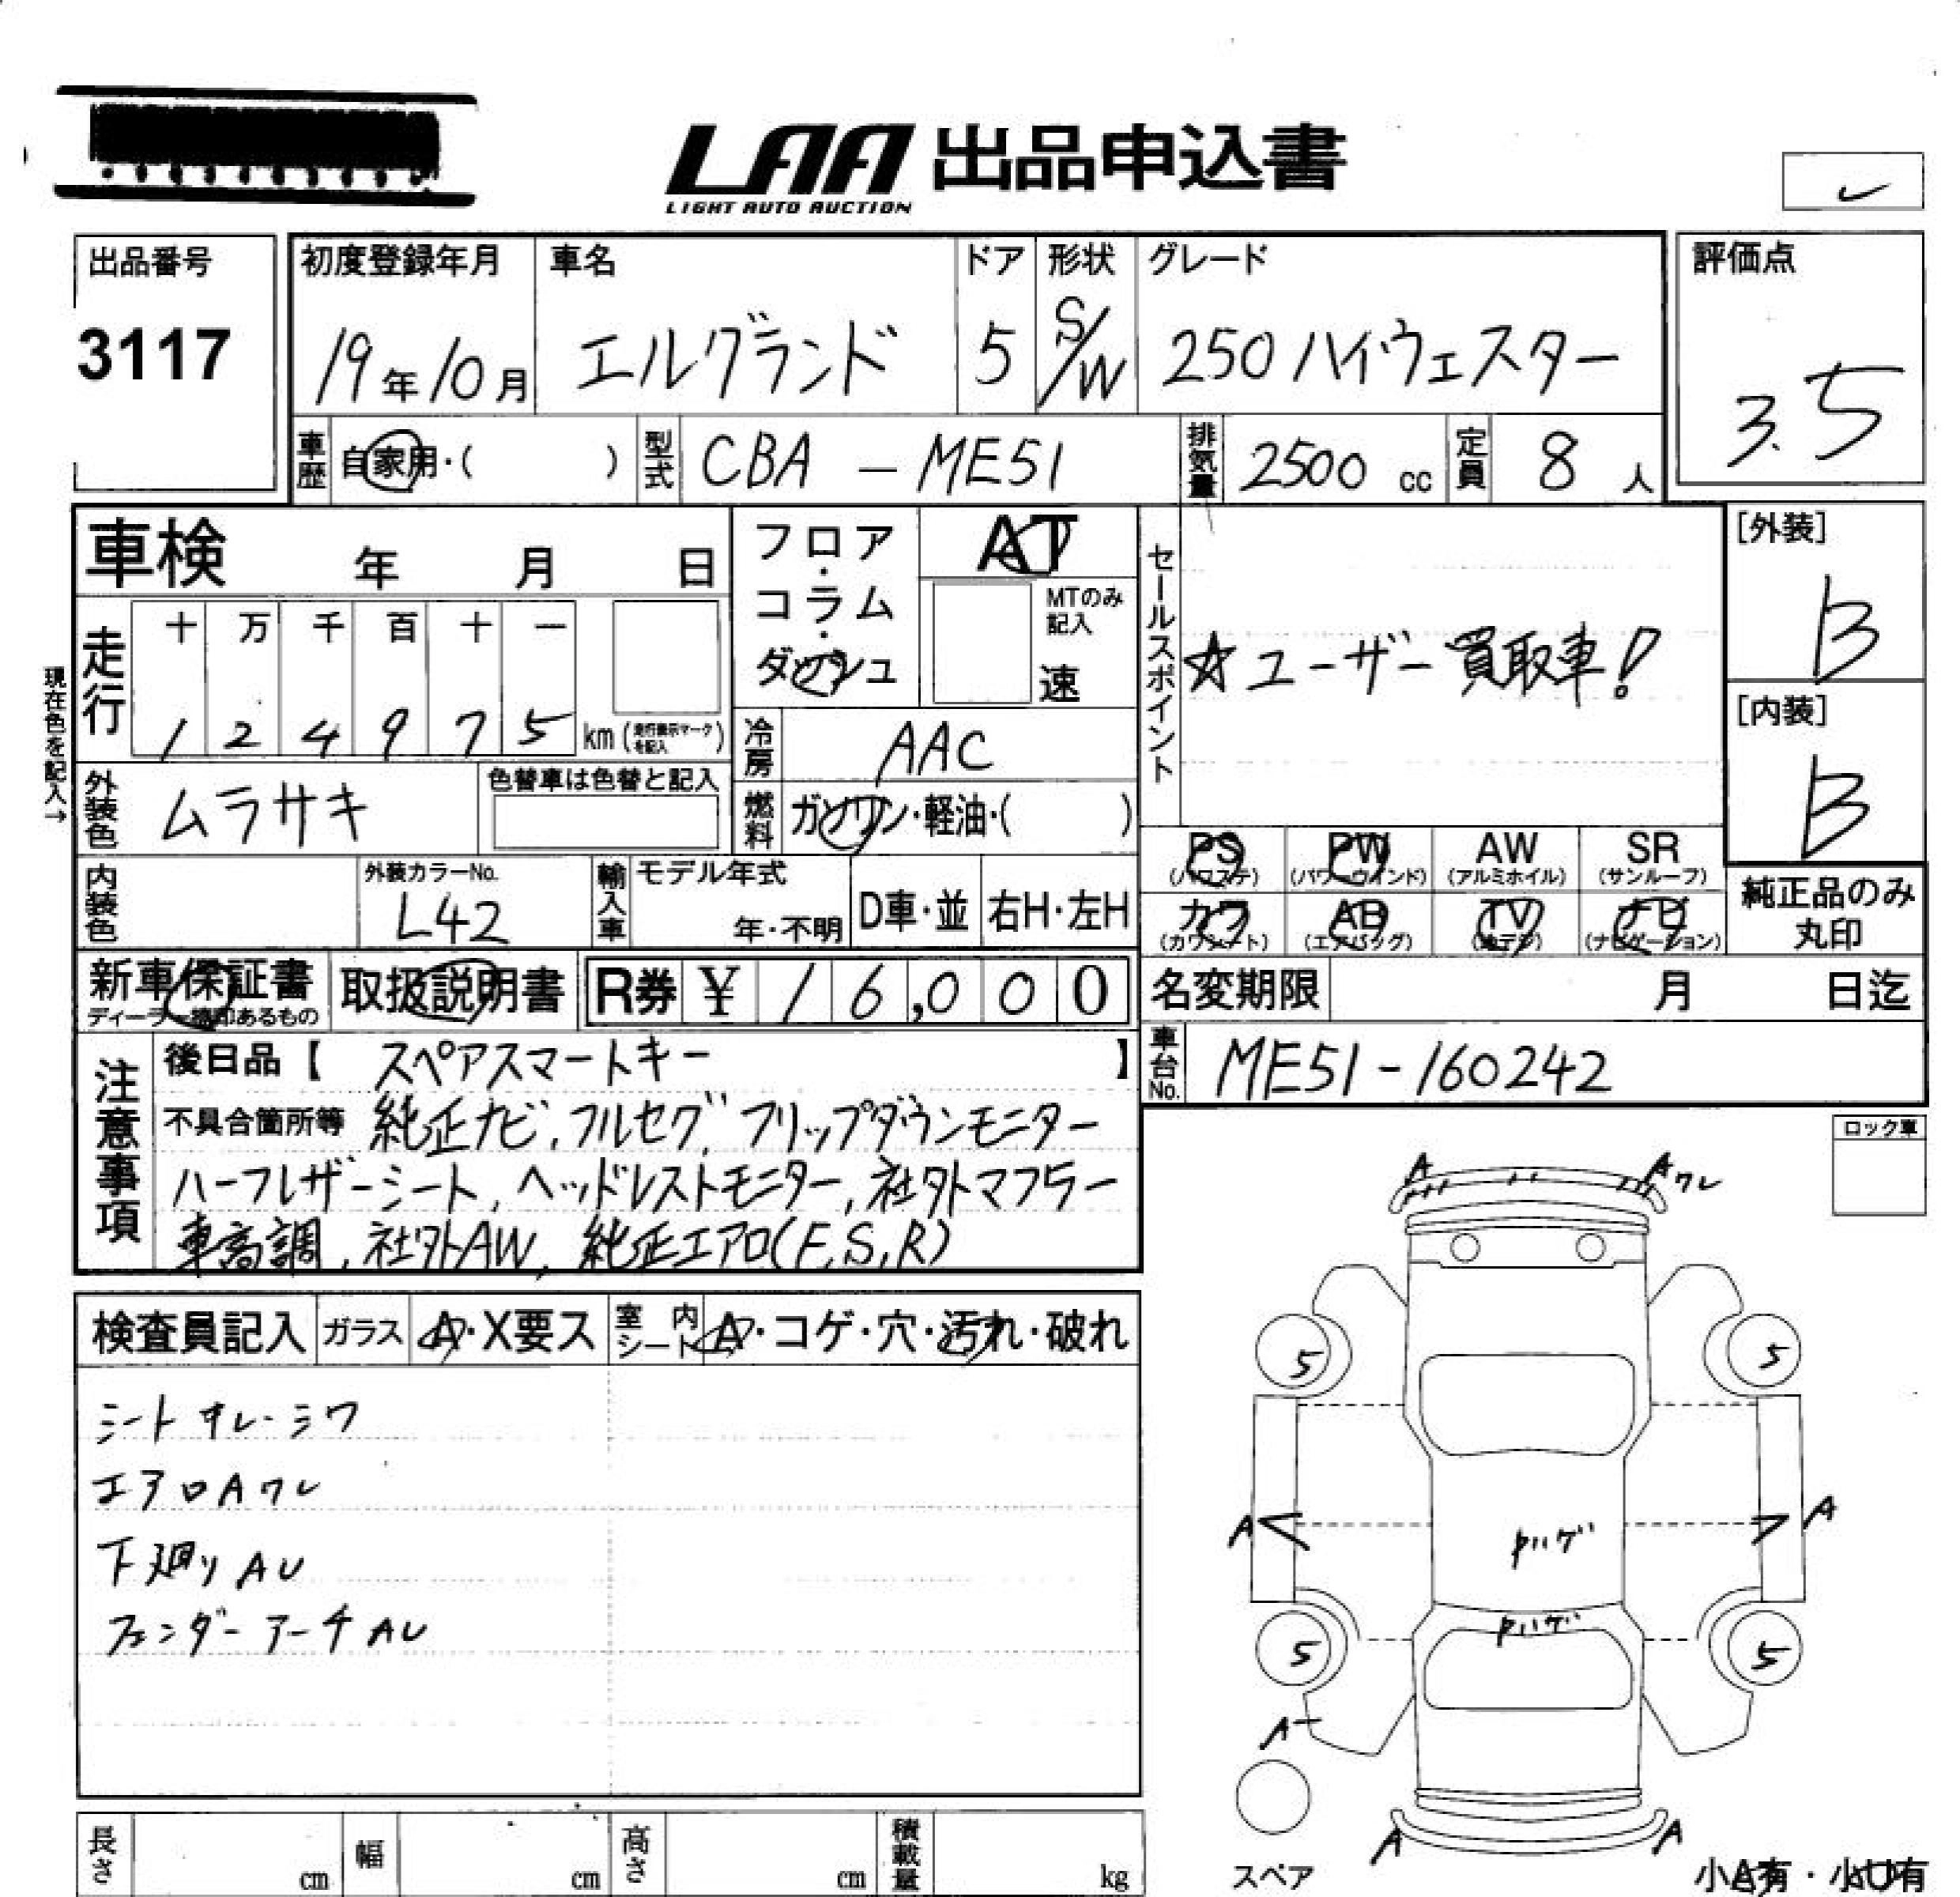 LAA 出品申込書
LIGHT AUTO AUCTION
出品番号
3117
初度登録年月
19年10月
車名
エルグランド
ドア
5
形状
S/W
グレード
250ハイウェスター
評価点
3.5
車歴 自家用・( )
型式 CBA - ME51
排気量 2500 cc
定員 8 人
車検 年 月 日
フロア・コラム・ダッシュ
AT
MTのみ記入
速
セールスポイント
☆ユーザー買取車!
[外装]
B
[内装]
B
現在色を記入→
走行
十 万 千 百 十 一
1 2 4 9 7 5 km (走行表示マークを記入)
冷房 AAC
外装色 ムラサキ
色替車は色替と記入
燃料 ガソリン・軽油・( )
PS (パワステ)
PW (パワーウインド)
AW (アルミホイル)
SR (サンルーフ)
内装色
外装カラーNo.
L42
輸入車
モデル年式
年・不明
D車・並
右H・左H
カワ (カワシート)
AB (エアバッグ)
TV (地デジ)
ナビ (ナビゲーション)
純正品のみ
丸印
新車保証書
ディーラー捺印あるもの
取扱説明書
R券 ¥ 16,000
名変期限 月 日迄
注意事項
後日品【 スペアスマートキー 】
車台No. ME51-160242
不具合箇所等 純正ナビ、フルセグ、フリップダウンモニター
ハーフレザーシート、ヘッドレストモニター、社外マフラー
車高調、社外AW、純正エアロ(F,S,R)
ロック車
検査員記入
ガラス A・X要ス
室内シート A・コゲ・穴・汚れ・破れ
シートスレ・シワ
エアロAワレ
下廻りAU
フェンダーアーチAU
A
Aワレ
5
5
A
A
ハゲ
ハゲ
5
5
A
A
A
スペア
小A有・小U有
長さ cm
幅 cm
高さ cm
積載量 kg